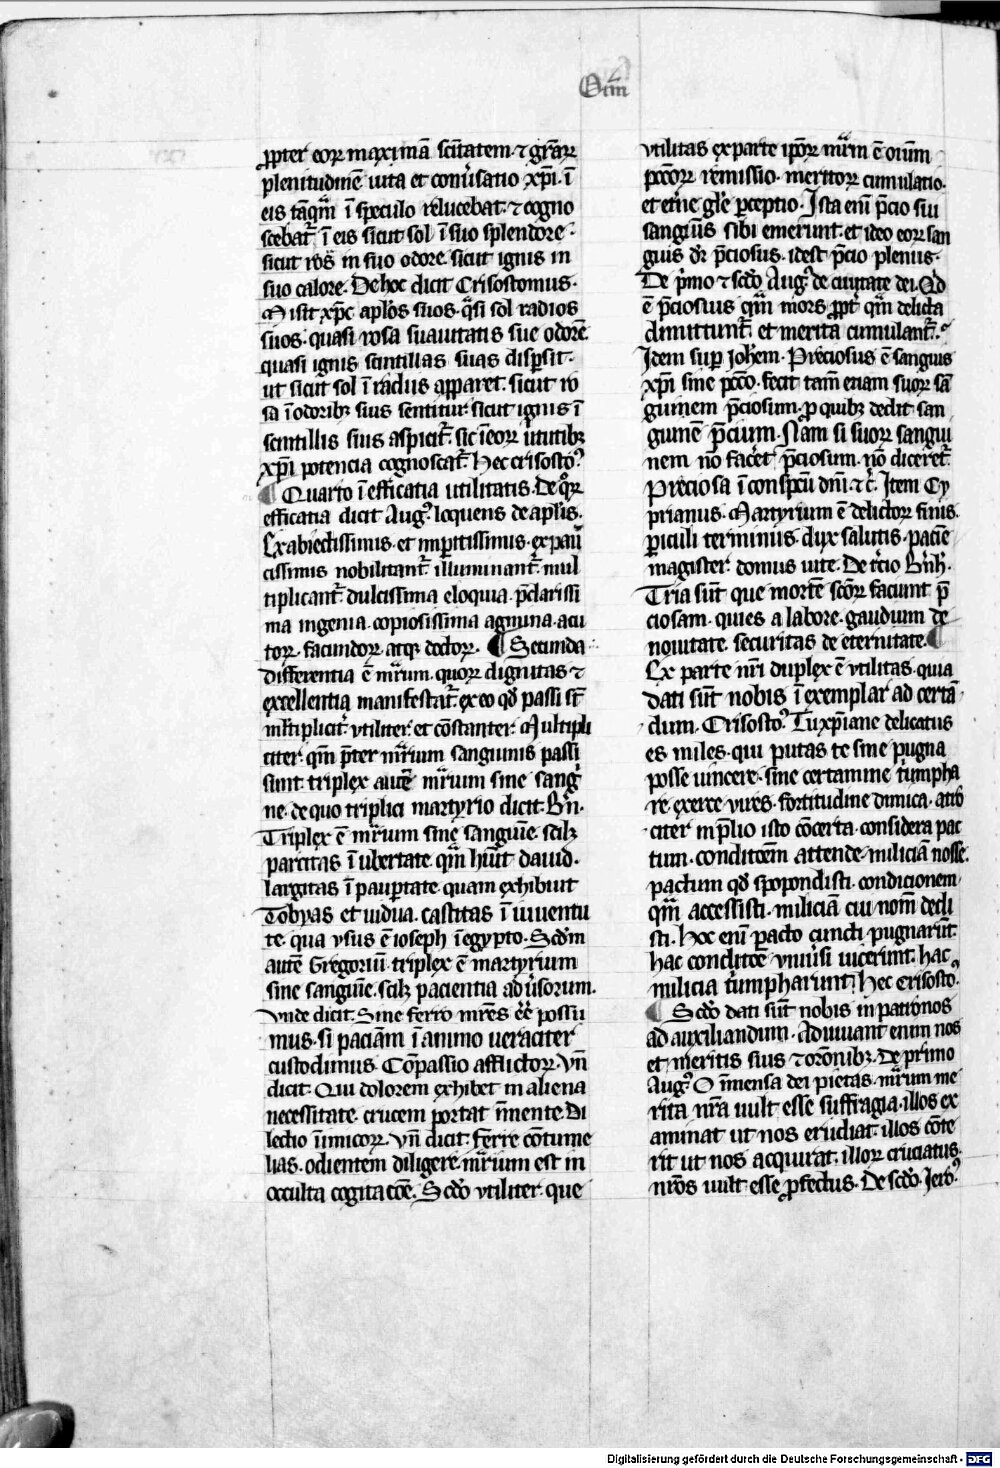 Om̅
ꝓpter eoꝝ maximā sc̄itatem ⁊ gr̄aꝝ
plenitudinē uita et conu̓satio xp̄i ī
eis tāqm̄ ī speculo relucebat ⁊ cogno
scebat̄ ī eis sicut sol ī suo splendore
sicut ros in suo odore sicut ignis in
suo calore. De hoc dicit Crisostomus.
Misit xp̄c apl̄os suos q̄si sol radios
suos. quasi rosa suauitatis sue odorē
quasi ignis scintillas suas disꝑsit.
ut sicut sol ī radiis apparet. sicut ro
sa ī odoribꝫ suis sentitur sicut ignis ī
scintillis suis aspicit̄. sic ī eoꝝ u̓tutibꝫ
xp̄i potencia cognoscat̄. Hec crisosto.
¶ Quarto ī efficatia utilitatis. De qͦꝝ
efficatia dicit Aug. loquens de apl̄is.
Ex abiectissimis. et impitissimis. ex pau
cissimis nobilitant̄. illuminant̄. mul
tiplicant̄. dulcissima eloquia. p̄clarissi
ma ingenia. copiosissima agmina. acu
toꝝ. facundoꝝ. atqꝫ doctoꝝ. ¶ Secunda
differentia ē mr̄um. quoꝝ dignitas ⁊
excellentia manifestat̄. ex eo qd̄ passi st̄
ml̄tiplicit̄. vtiliter. et cōstanter. Multipli
citer. qm̄ p̄ter mr̄ium sanguinis passi
sunt triplex autē mr̄ium sine sangͥ
ne. de quo triplici martyrio dicit. B̓n.
Triplex ē mr̄ium sine sanguīe. scilꝫ
parcitas ī ubertate. qm̄ hūit dauid.
largitas ī pauꝑtate. quam exhibuit
Tobyas et uidua. castitas ī iuuentu
te. qua vsus ē ioseph ī egypto. Scd̄m
autē Gregoriū. triplex ē martyrium
sine sanguīe. scilꝫ pacientia adu̓sorum.
vnde dicit. Sine ferro mr̄es ēē possu
mus. si paciām ī animo ueraciter
custodimus. Cōpassio afflictoꝝ. vn̄
dicit. Qui dolorem exhibet in aliena
necessitate. crucem portat ī mente. Di
lectio īimicoꝝ. vn̄ dicit. ferre cōtume
lias. odientem diligere. mr̄ium est in
occulta cogitacōe. Scd̓o vtiliter. que
vtilitas ex parte ip̄oꝝ mr̄m ē oīum
pccōꝝ remissio. meritoꝝ cumulatio.
et et̓ne gl̓e ꝑceptio. Ista enī p̄cio sui
sanguīs sibi emerunt. et ideo eoꝝ san
guis dr̄ p̄ciosus. idest p̄cio plenus.
De p̓mo ⁊ scd̓o Aug. de ciuitate dei. Qd̄
ē p̄ciosius qm̄ mors ꝓpt̓ qm̄ delicta
dimittunt̄. et merita cumulant̄.
Idem suꝑ Joh̄em. Preciosus ē sanguis
xp̄i sine pccō. fecit tam̄ etiam suoꝝ sā
guinem p̄ciosum. ꝓ quibꝫ dedit san
guinē p̄cium. Nam si suoꝝ sangui
nem nō facet p̄ciosum. nō diceret̄.
Preciosa ī conspcū dn̄i. ⁊c̄. Item Cy
prianus. Martyrium ē delictoꝝ finis.
ꝑiculi terminus. dux salutis. paciē
magister. domus uite. De t̓cio B̓nh̓.
Tria sūt que mortē sc̄oꝝ faciunt p̄
ciosam. quies a labore. gaudium de
nouitate. securitas de eternitate. ¶
Ex parte nr̄i duplex ē vtilitas. quia
dati sūt nobis ī exemplar ad certā
dum. Crisosto. Tu xp̄iane delicatus
es miles. qui putas te sine pugna
posse uincere. sine certamine t̓umpha
re. exerce vires. fortitudine dimica. atro
citer in p̄lio isto cōcerta. considera pac
tum. conditōem attende. miliciā nosse.
pactum qd̄ spopondisti. condicionem
qm̄ accessisti. miliciā cui nom̄ dedi
sti. Hoc enī pacto cuncti pugnarūt.
hac conditōe vniu̓si uicerunt. hac
milicia t̓umpharunt. hec crisosto.
¶ Scd̓o dati sūt nobis in patronos
ad auxiliandum. Adiuuant enim nos
et meritis suis ⁊ or̄onibꝫ. De primo
Aug. O īmensa dei pietas. mr̄um me
rita nr̄a uult esse suffragia. illos ex
aminat ut nos erudiat. illos cōte
rit ut nos acquirat. illoꝝ cruciatus
nr̄os uult esse ꝓfectus. De scd̓o. Jero.
Digitalisierung gefördert durch die Deutsche Forschungsgemeinschaft - DFG